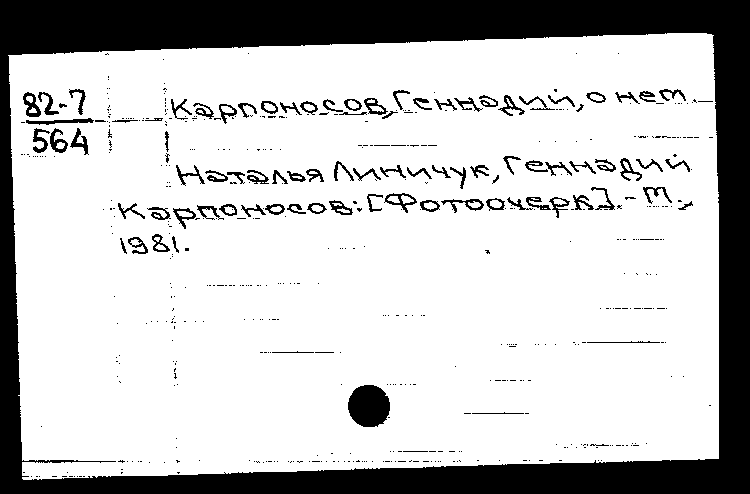 82-7
564
Карпоносов, Геннадий, о нем.
Наталья Линичук, Геннадий
Карпоносов: [Фотоочерк]. - М.,
1981.